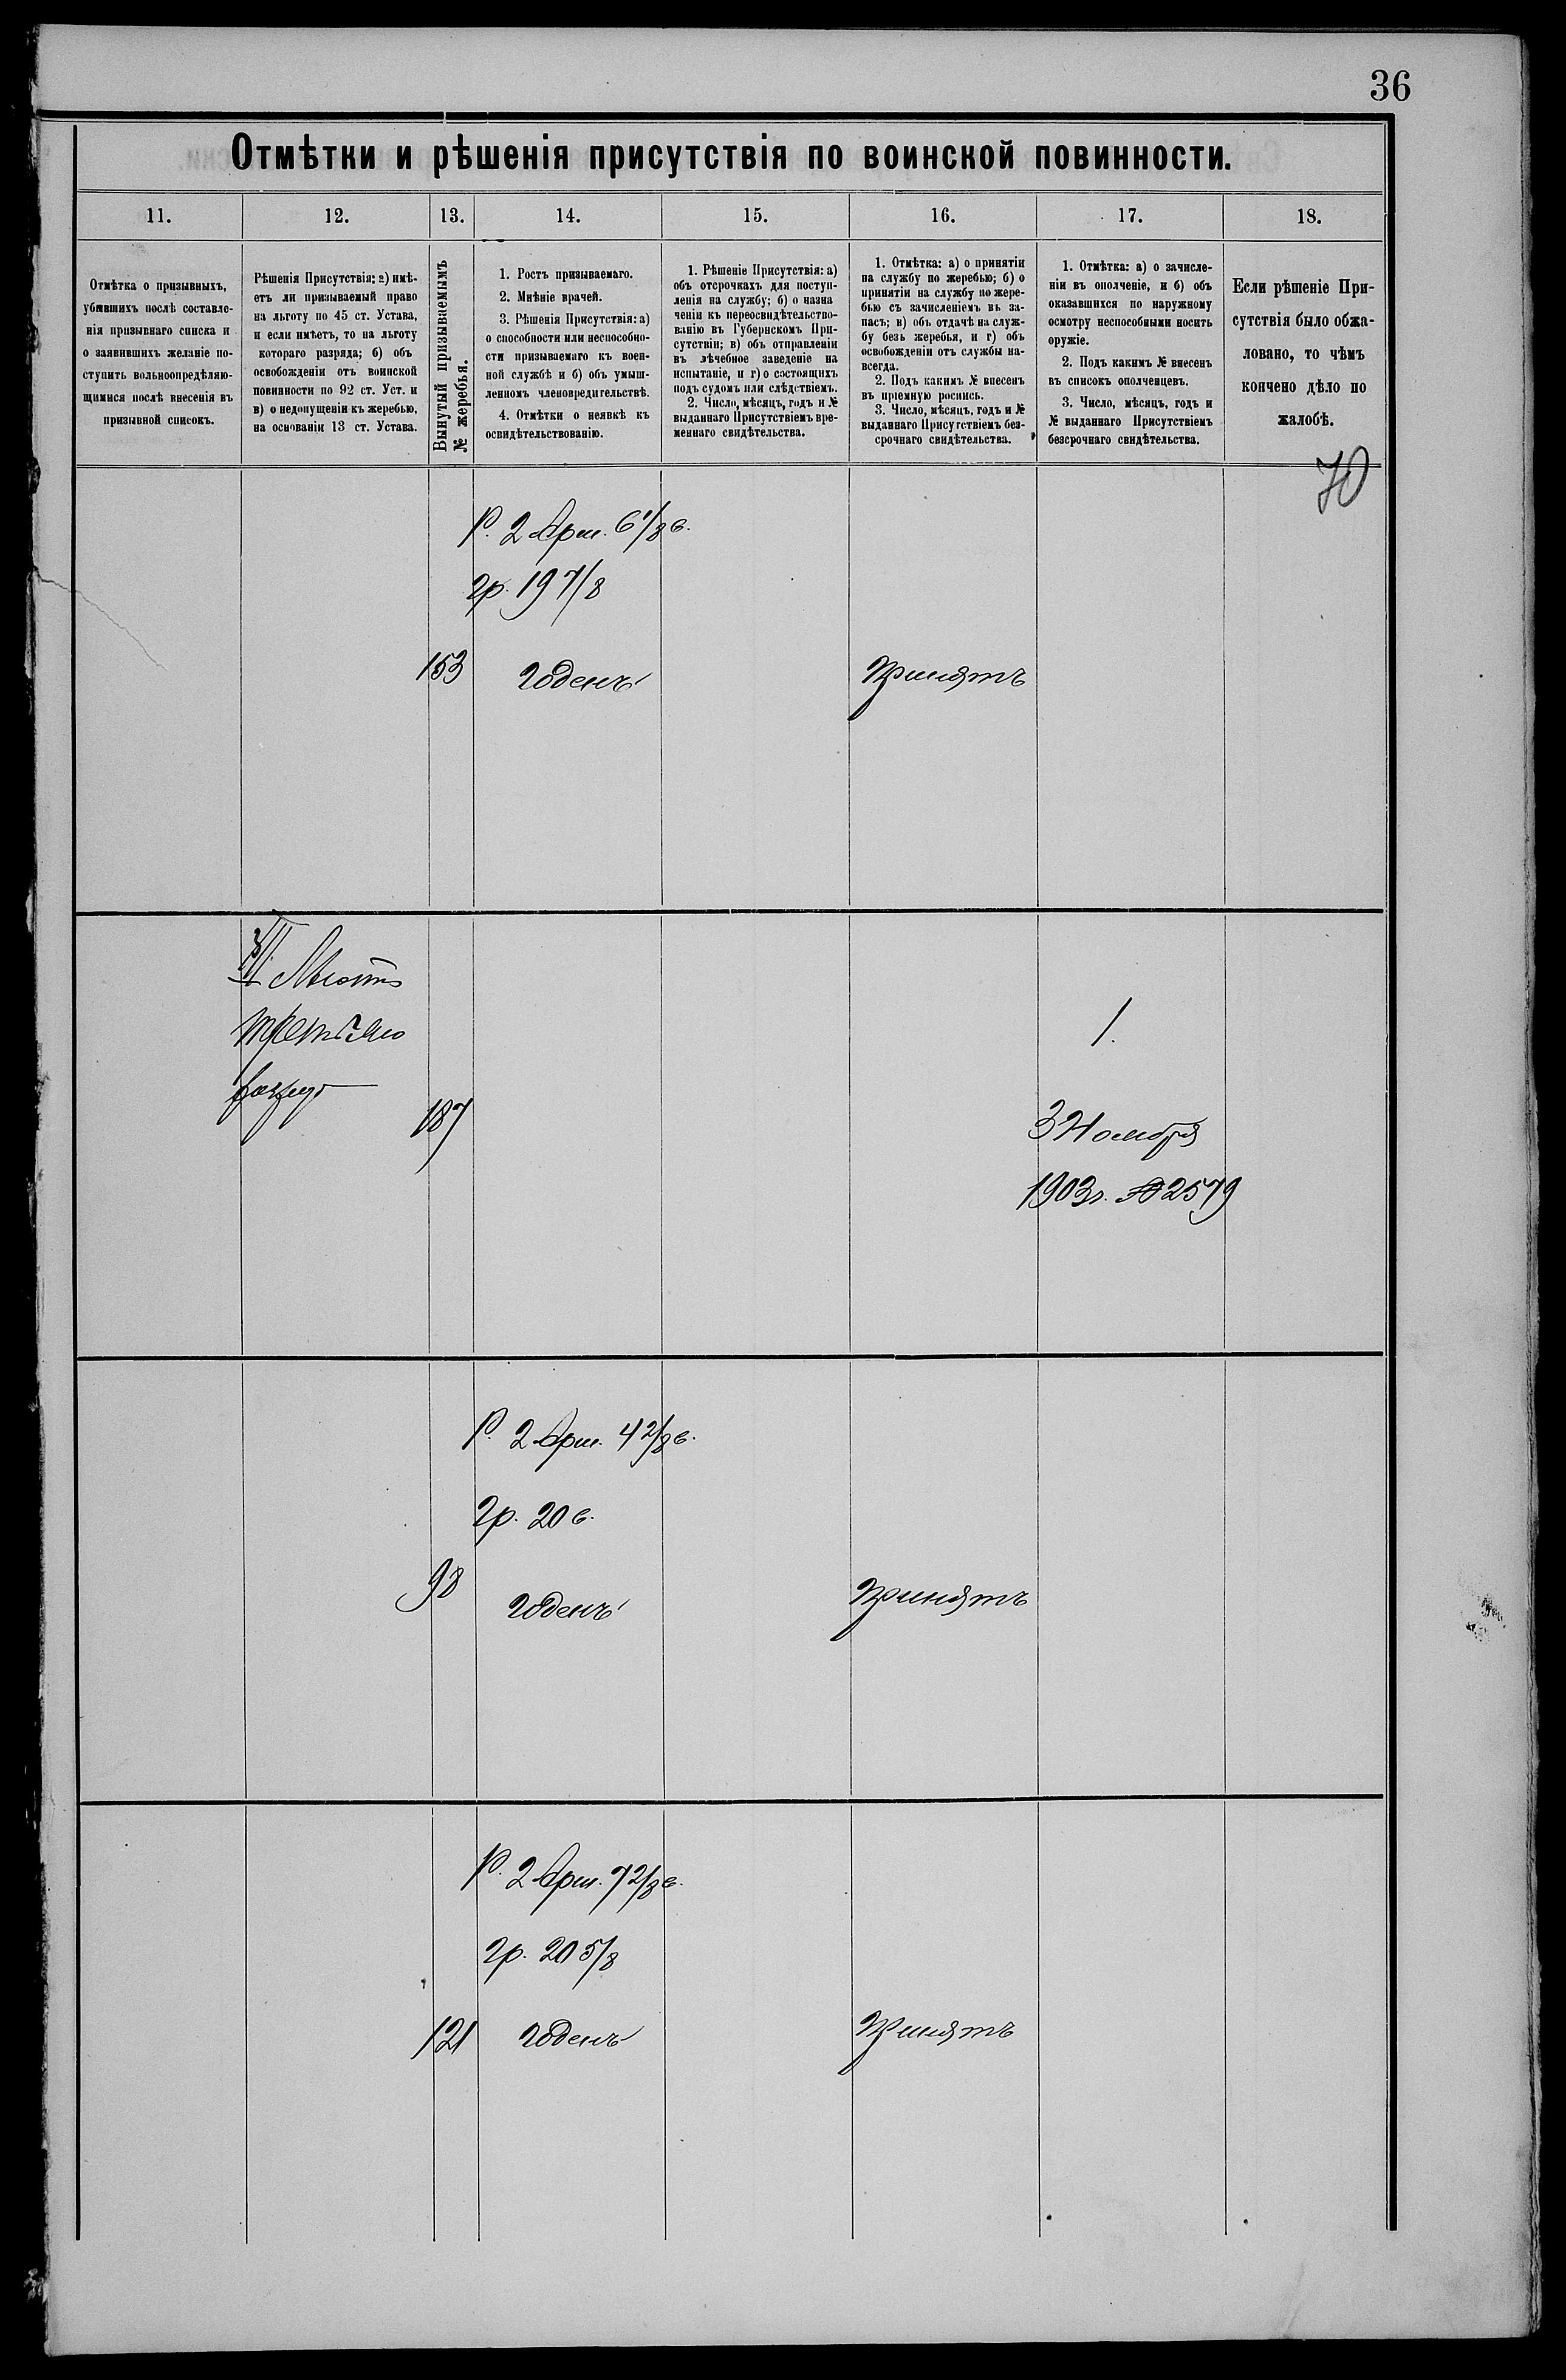 36
Отмѣтки и рѣшенія присутствія по воинской повинности.
11.
12.
13.
14.
15.
16.
17.
18.
Отмѣтка о призывныхъ,
убывшихъ послѣ составле-
нія призывнаго списка и
о заявившихъ желаніе по-
ступить вольноопредѣляю-
щимися послѣ внесенія въ
призывной списокъ.
Рѣшенія Присутствія: а) имѣ-
етъ ли призываемый право
на льготу по 45 ст. Устава,
и если имѣетъ, то на льготу
котораго разряда; б) объ
освобожденіи отъ воинской
повинности по 92 ст. Уст. и
в) о недопущеніи къ жеребью,
на основаніи 13 ст. Устава.
Вынутый призываемымъ
№ жеребья.
1. Ростъ призываемаго.
2. Мнѣніе врачей.
3. Рѣшенія Присутствія: а)
о способности или неспособно-
сти призываемаго къ воен-
ной службѣ и б) объ умыш-
ленномъ членовредительствѣ.
4. Отмѣтки о неявкѣ къ
освидѣтельствованію.
1. Рѣшеніе Присутствія: а)
объ отсрочкахъ для поступ-
ленія на службу; б) о назна
ченіи къ переосвидѣтельство-
ванію въ Губернскомъ При-
сутствіи; в) объ отправленіи
въ лѣчебное заведеніе на
испытаніе, и г) о состоящихъ
подъ судомъ или слѣдствіемъ.
2. Число, мѣсяцъ, годъ и №
выданнаго Присутствіемъ вре-
меннаго свидѣтельства.
1. Отмѣтка: а) о принятіи
на службу по жеребью; б) о
принятіи на службу по жере-
бью съ зачисленіемъ въ за-
пасъ; в) объ отдачѣ на служ-
бу безъ жеребья, и г) объ
освобожденіи отъ службы на-
всегда.
2. Подъ какимъ № внесенъ
въ пріемную роспись.
3. Число, мѣсяцъ, годъ и №
выданнаго Присутствіемъ без-
срочнаго свидѣтельства.
1. Отмѣтка: а) о зачисле-
ніи въ ополченіе, и б) объ
оказавшихся по наружному
осмотру неспособными носить
оружіе.
2. Подъ какимъ № внесенъ
въ списокъ ополченцевъ.
3. Число, мѣсяцъ, годъ и
№ выданнаго Присутствіемъ
безсрочнаго свидѣтельства.
Если рѣшеніе При-
сутствія было обжа-
ловано, то чѣмъ
кончено дѣло по
жалобѣ.
70
Р. 2 Арш. 6 1/8 в.
гр. 19 7/8
153
годенъ
принятъ
третьяго
187
1.
3 Ноября
1903 г. № 2579
Р. 2 Арш. 4 2/8 в.
гр. 20 в.
98
годенъ
принятъ
Р. 2 Арш. 7 2/8 в.
гр. 20 5/8
121
годенъ
принятъ